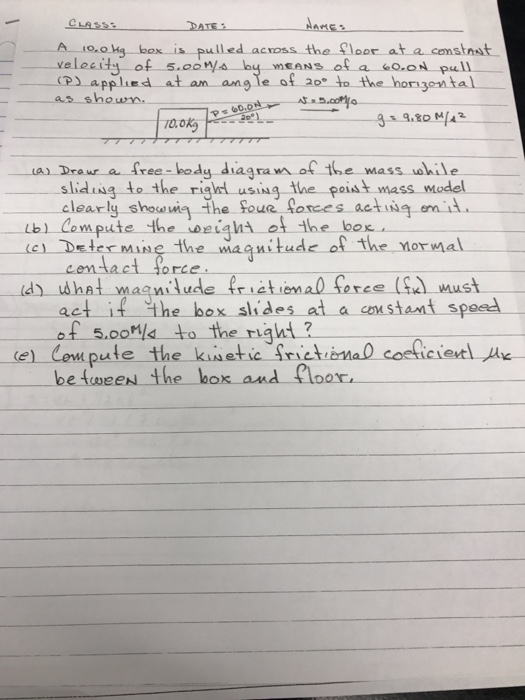 CLASS: DATE: NAME:
A 10.0 kg box is pulled across the floor at a constant
velocity of 5.00 M/s by MEANS of a 60.0N pull
(P) applied at an angle of 20° to the horizontal
as shown.
P = 60.0N
v = 5.00 M/s
20°
10.0 Kg
g = 9.80 M/s²
(a) Draw a free-body diagram of the mass while
sliding to the right using the point mass model
clearly showing the four forces acting on it.
(b) Compute the weight of the box.
(c) DETERMINE the magnitude of the normal
contact force.
(d) What magnitude frictional force (fk) must
act if the box slides at a constant speed
of 5.00 M/s to the right?
(e) Compute the kinetic frictional coeficient μk
between the box and floor.